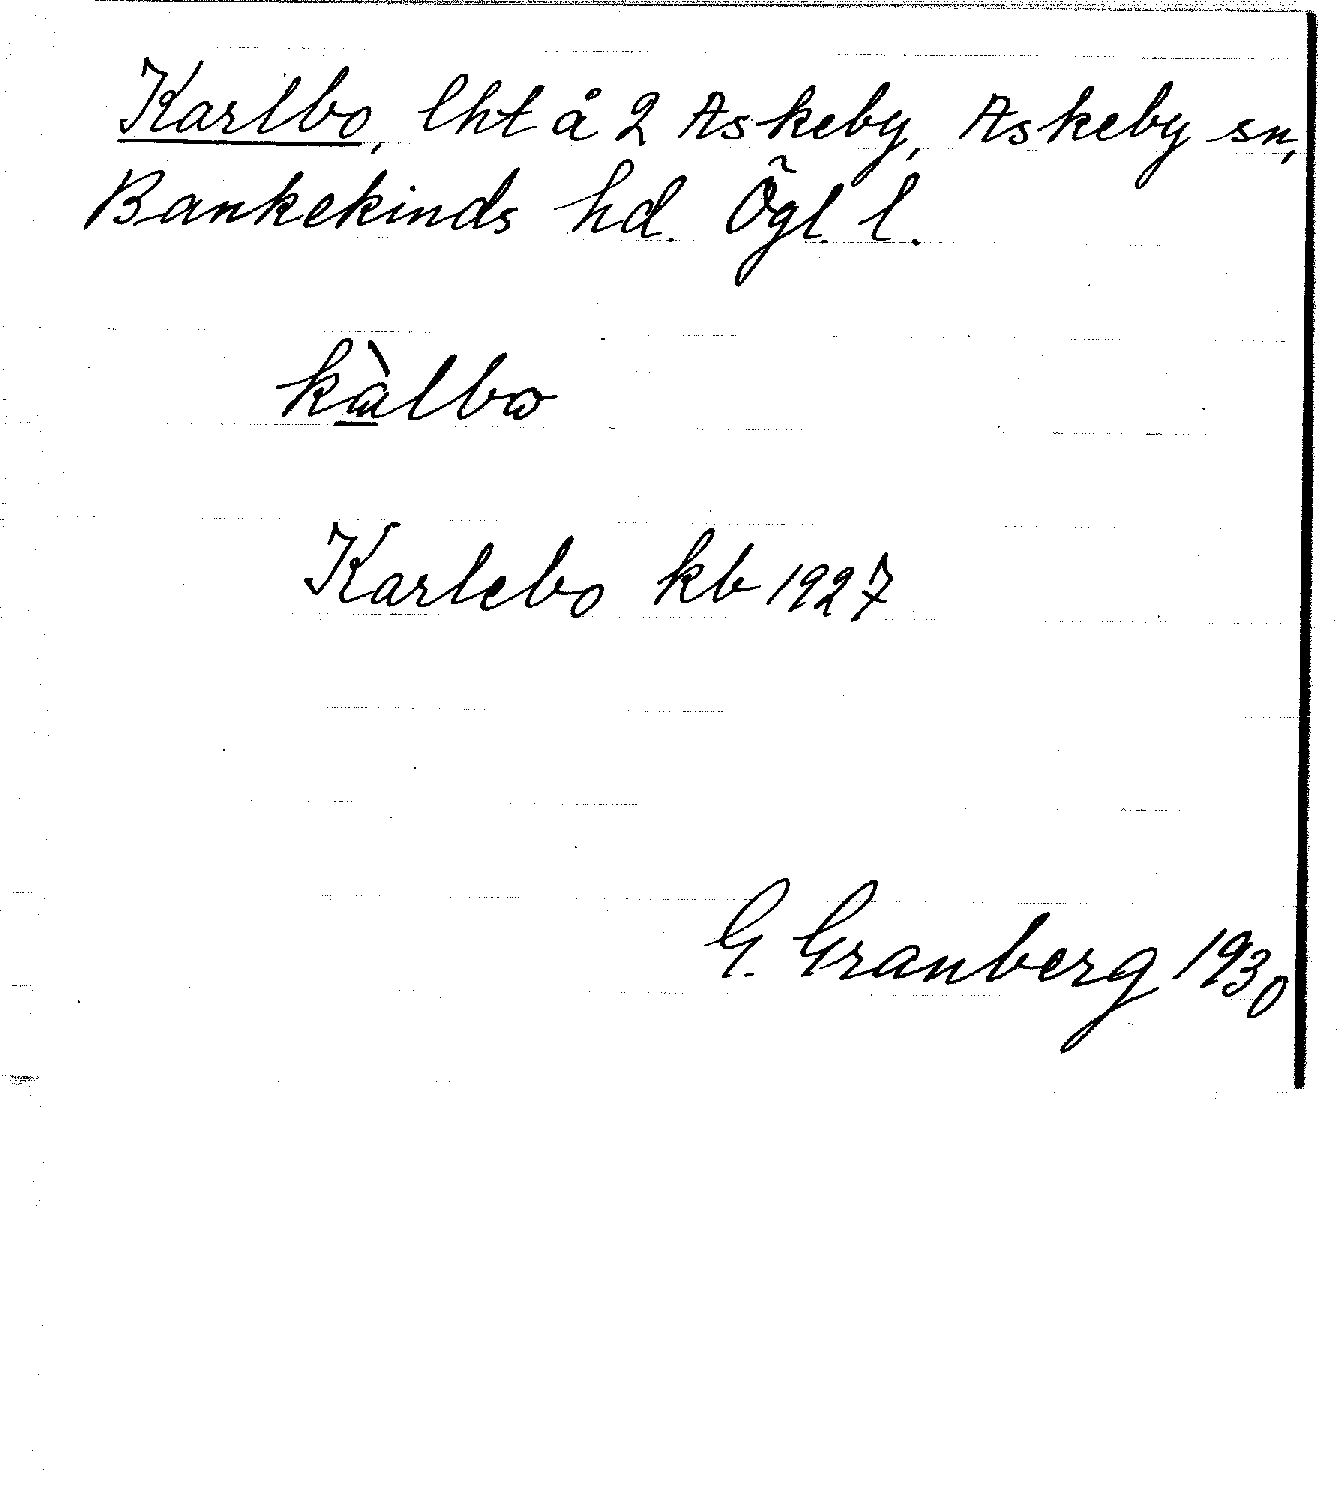 Karlbo, lht å 2 Askeby, Askeby sn,
Bankekinds hd. Ögl. l.
kàlbω
Karlebo kb 1927
G. Granberg 1930